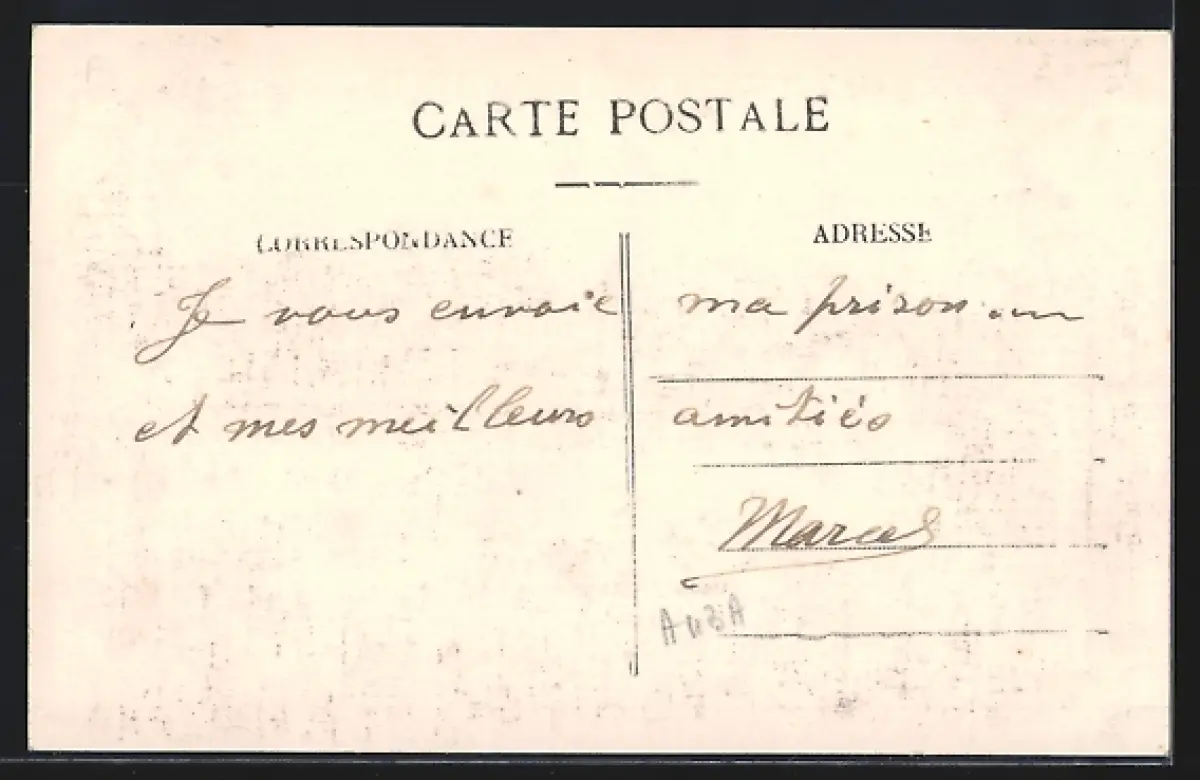 CARTE POSTALE
CORRESPONDANCE
ADRESSE
Je vous envoie ma prison
et mes meilleurs amitiés
Marcel